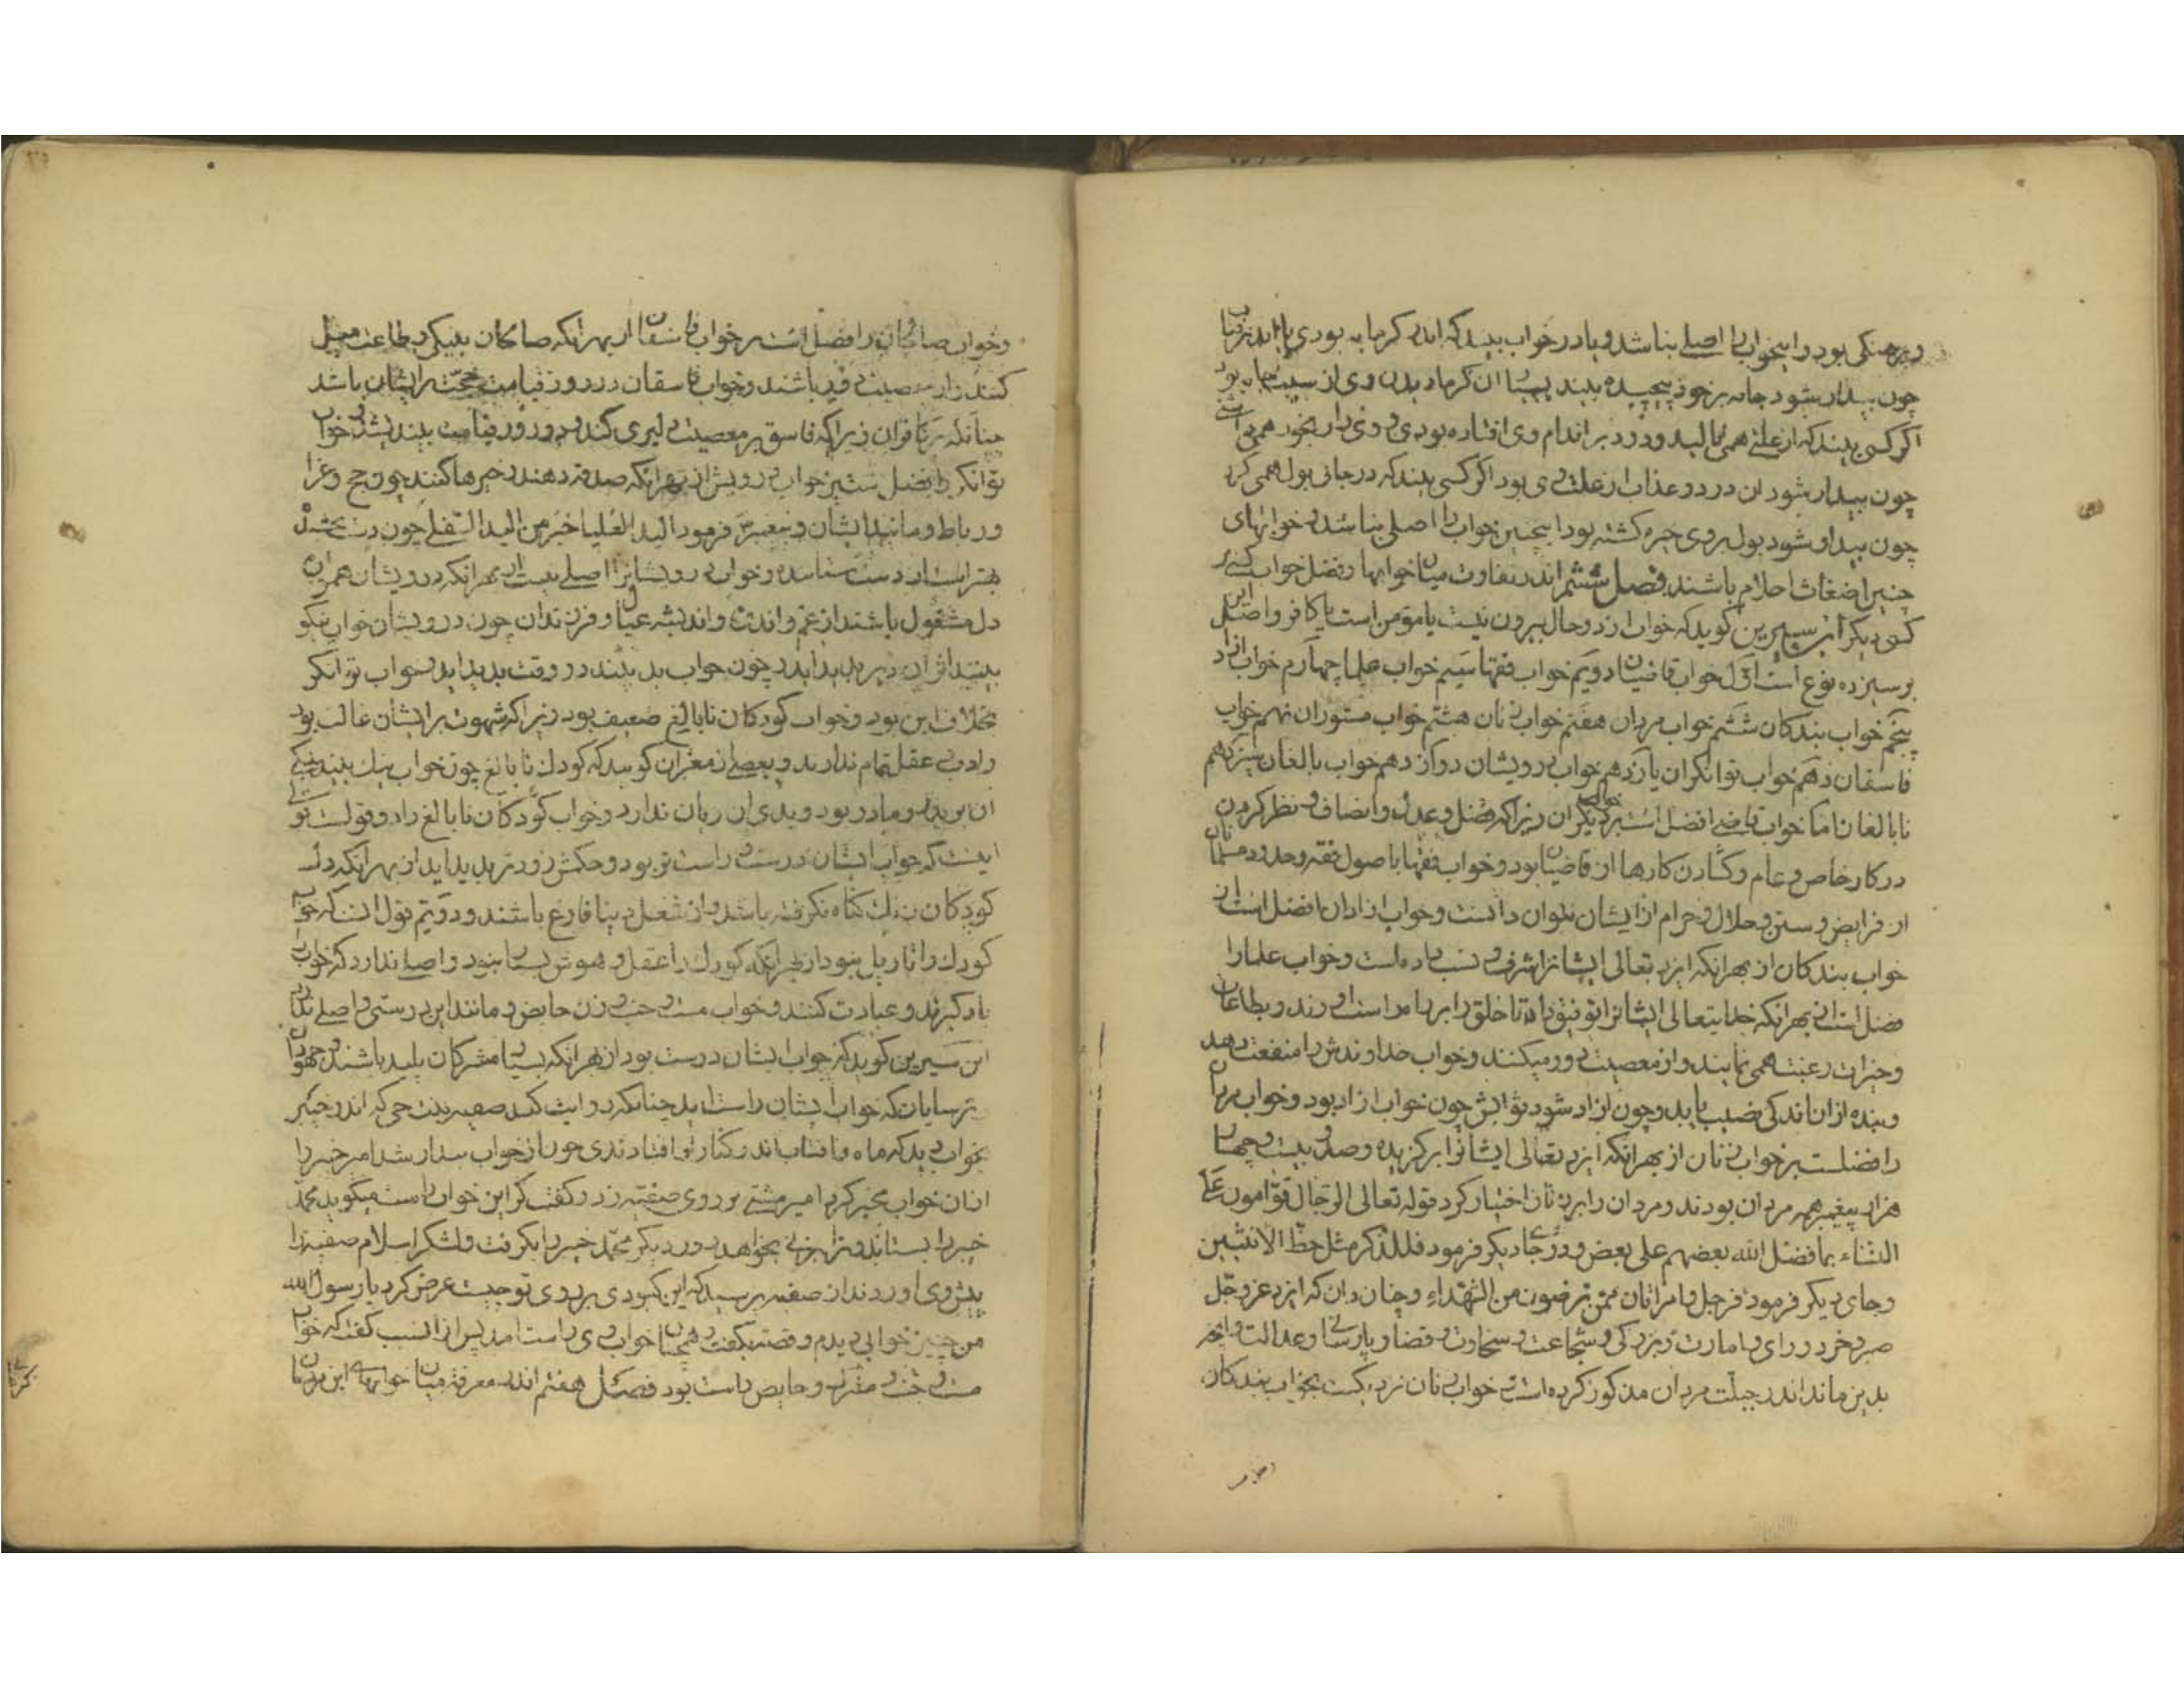 و برهنگی بود و اینخواب را اصلی نباشد و یا در خواب بیند که اندر گرمابه بودی یا اندر آفتاب
چون بیدار شود جامه بر خود پیچیده بیند بسیار آن گرما در بدن وی از سبب جامه بود
اگر کسی بیند که از علتی همی نالید و درد بر اندام وی افتاده بودی و وی را رنجور همی داشتی
چون بیدار شود آن درد و عذاب از علت وی بود اگر کسی بیند که در جائی بول همی کرد
چون بیدار شود بول بروی چیره گشته بود اینچنین خواب را اصلی نباشد و خوابهای
چنین اضغاث احلام باشند فصل ششم اندر تفاوت میان خوابها و فضل خواب کسی بر
کسی دیگر ابن سیرین گوید که خواب از دو حال بیرون نیست یا مؤمن است یا کافر و اصل این
بر سیزده نوع است اول خواب قاضیان دویم خواب فقها سیم خواب علما چهارم خواب آزاد
پنجم خواب بندگان ششم خواب مردان هفتم خواب زنان هشتم خواب مستوران نهم خواب
فاسقان دهم خواب توانگران یازدهم خواب درویشان دوازدهم خواب بالغان سیزدهم
نابالغان اما خواب قاضی افضل است بر خواب دیگران زیرا که فضل و عدل و انصاف و نظر کردن
در کار خاص و عام و گشادن کارها از قاضیان بود و خواب فقها باصول فقه و حدود مسلمانان
از فرایض و سنن و حلال و حرام از ایشان بتوان دانست و خواب آزادان افضل است از
خواب بندگان از بهر آنکه ایزد تعالی ایشانرا شرف و نسب داده است و خواب علما را
فضل است از بهر آنکه خدایتعالی ایشانرا توفیق داد تا خلق را براه راست آورند و بطاعات
و خیرات رغبت همی نمایند و از معصیت دور میکنند و خواب خداوندش را منفعت دهد
و بنده از آن اندکی نصیب یابد و چون آزاد شود توابش چون خواب آزاد بود و خواب مردان
را فضلست بر خواب زنان از بهر آنکه ایزد تعالی ایشانرا برگزیده و صد و بیست و چهار
هزار پیغمبر همه مردان بودند و مردان را بر زنان اختیار کرد قوله تعالی الرجال قوامون علی
النساء بما فضل الله بعضهم علی بعض و در جای دیگر فرمود فللذکر مثل حظ الانثیین
و جای دیگر فرمود فرجل وامراتان ممن ترضون من الشهداء و چنان دان که ایزد عز و جل
صبر و خرد و رای و امارت و بزرگی و شجاعت و سخاوت و قضا و پارسائی و عدالت و آنچه
بدین ماند اندر جبلت مردان مذکور کرده است و خواب زنان نزدیکست بخواب بندگان
و خواب صالحان را فضل است بر خواب فاسقان از بهر آنکه صالحان بنیکی و طاعت میل
کنند و از معصیت دور باشند و خواب فاسقان در روز قیامت حجت بر ایشان باشد
چنانکه بر کافران زیرا که فاسق بر معصیت دلیری کند و در روز قیامت بیند و خواب
توانگر را فضل است بر خواب درویش از بهر آنکه صدقه دهند و خیرها کنند چو حج و غزا
و رباط و مانند ایشان و پیغمبر فرمود الید العلیا خیر من الید السفلی چون دست بخشنده
بهتر است از دست ستاننده و خواب درویشانرا اصلی نیست از بهر آنکه درویشان همواره
دل مشغول باشند از غم و اندوه و اندیشه عیال و فرزندان چون درویشان خواب نیکو
بینند اثر آن دیر پدید آید و چون خواب بد بینند در وقت پدید آید و خواب توانگر
بخلاف این بود و خواب کودکان نابالغ ضعیف بود زیرا که شهوت بر ایشان غالب بود
و ادب و عقل تمام ندارند و بعضی از معبران گویند که کودک نابالغ چون خواب نیک بیند نیکی
آن بر پدر و مادر بود و بدی آن زیان ندارد و خواب کودکان نابالغ را دو قولست قولی
اینست که خواب ایشان درست و راست تر بود و حکمش زودتر پدید آید از بهر آنکه دل
کودکان زنک گناه نگرفته باشد و از شغل دنیا فارغ باشند و دویم قول آنست که خواب
کودک را تاویل نبود از بهر آنکه کودک را عقل و هوش بسیار نبود و اصلی ندارد که خواب
یاد گیرند و عبادت کنند و خواب مست و جنب و زن حایض و مانند این درستی و اصلی ندارد
ابن سیرین گوید که خواب ایشان درست بود از بهر آنکه بسیار مشرکان پلید باشند و جهودان
ترسایان که خواب ایشان راست آید چنانکه روایت کند صفیه بنت حی که اندر خیبر
بخواب دید که ماه و آفتاب اندر کنار او افتادندی چون از خواب بیدار شد امیر خیبر را
از آن خواب مخبر کرد امیر مشتی بر روی صفیه زد و گفت که این خواب راست میگوید محمد
خیبر را بستاند و ترا بزنی بخواهد روز دیگر محمد خیبر را بگرفت و لشکر اسلام صفیه را
پیش وی آوردند از صفیه پرسید که این کبودی بر روی تو چیست عرض کرد یا رسول الله
من چنین خوابی دیدم و قصه بگفت و همچنان خواب وی راست آمد پس از این سبب گفت که خواب
مست و جنب و مشرک و حایض راست بود فصل هفتم اندر معرفة میان خوابهای این مردمان